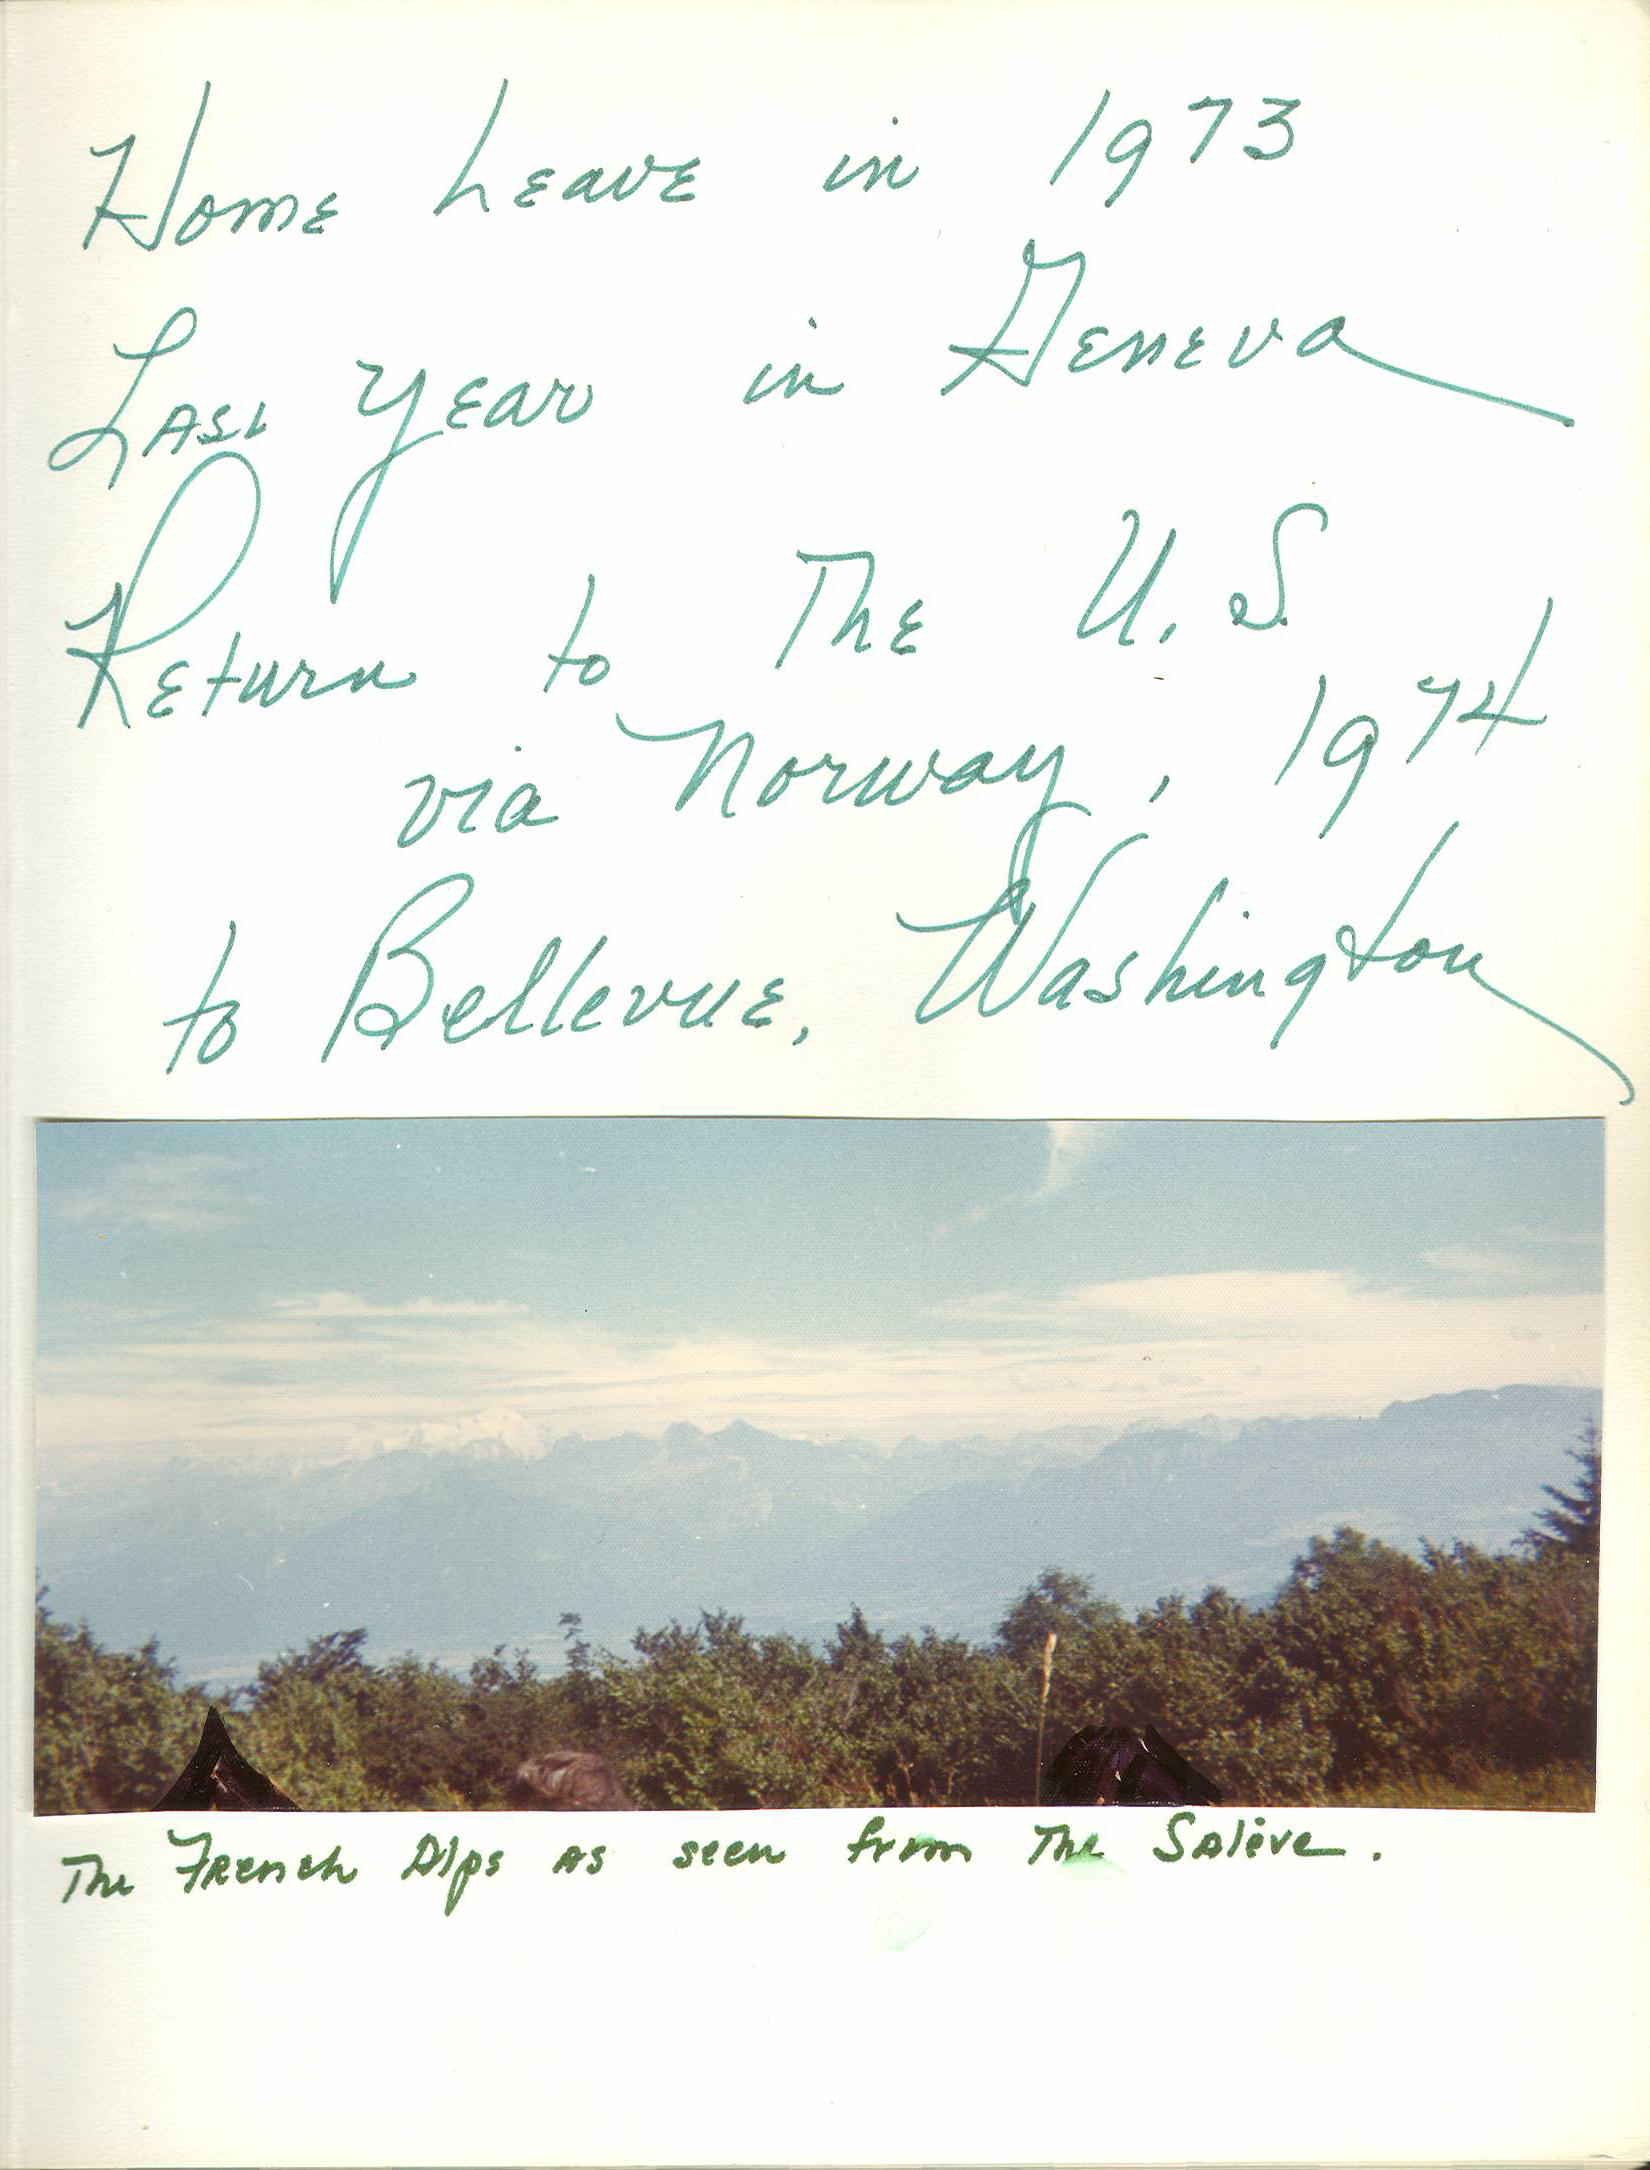 Home Leave in 1973
Last Year in Geneva
Return to The U.S.
via Norway, 1974
to Bellevue, Washington
The French Alps as seen from The Salève.